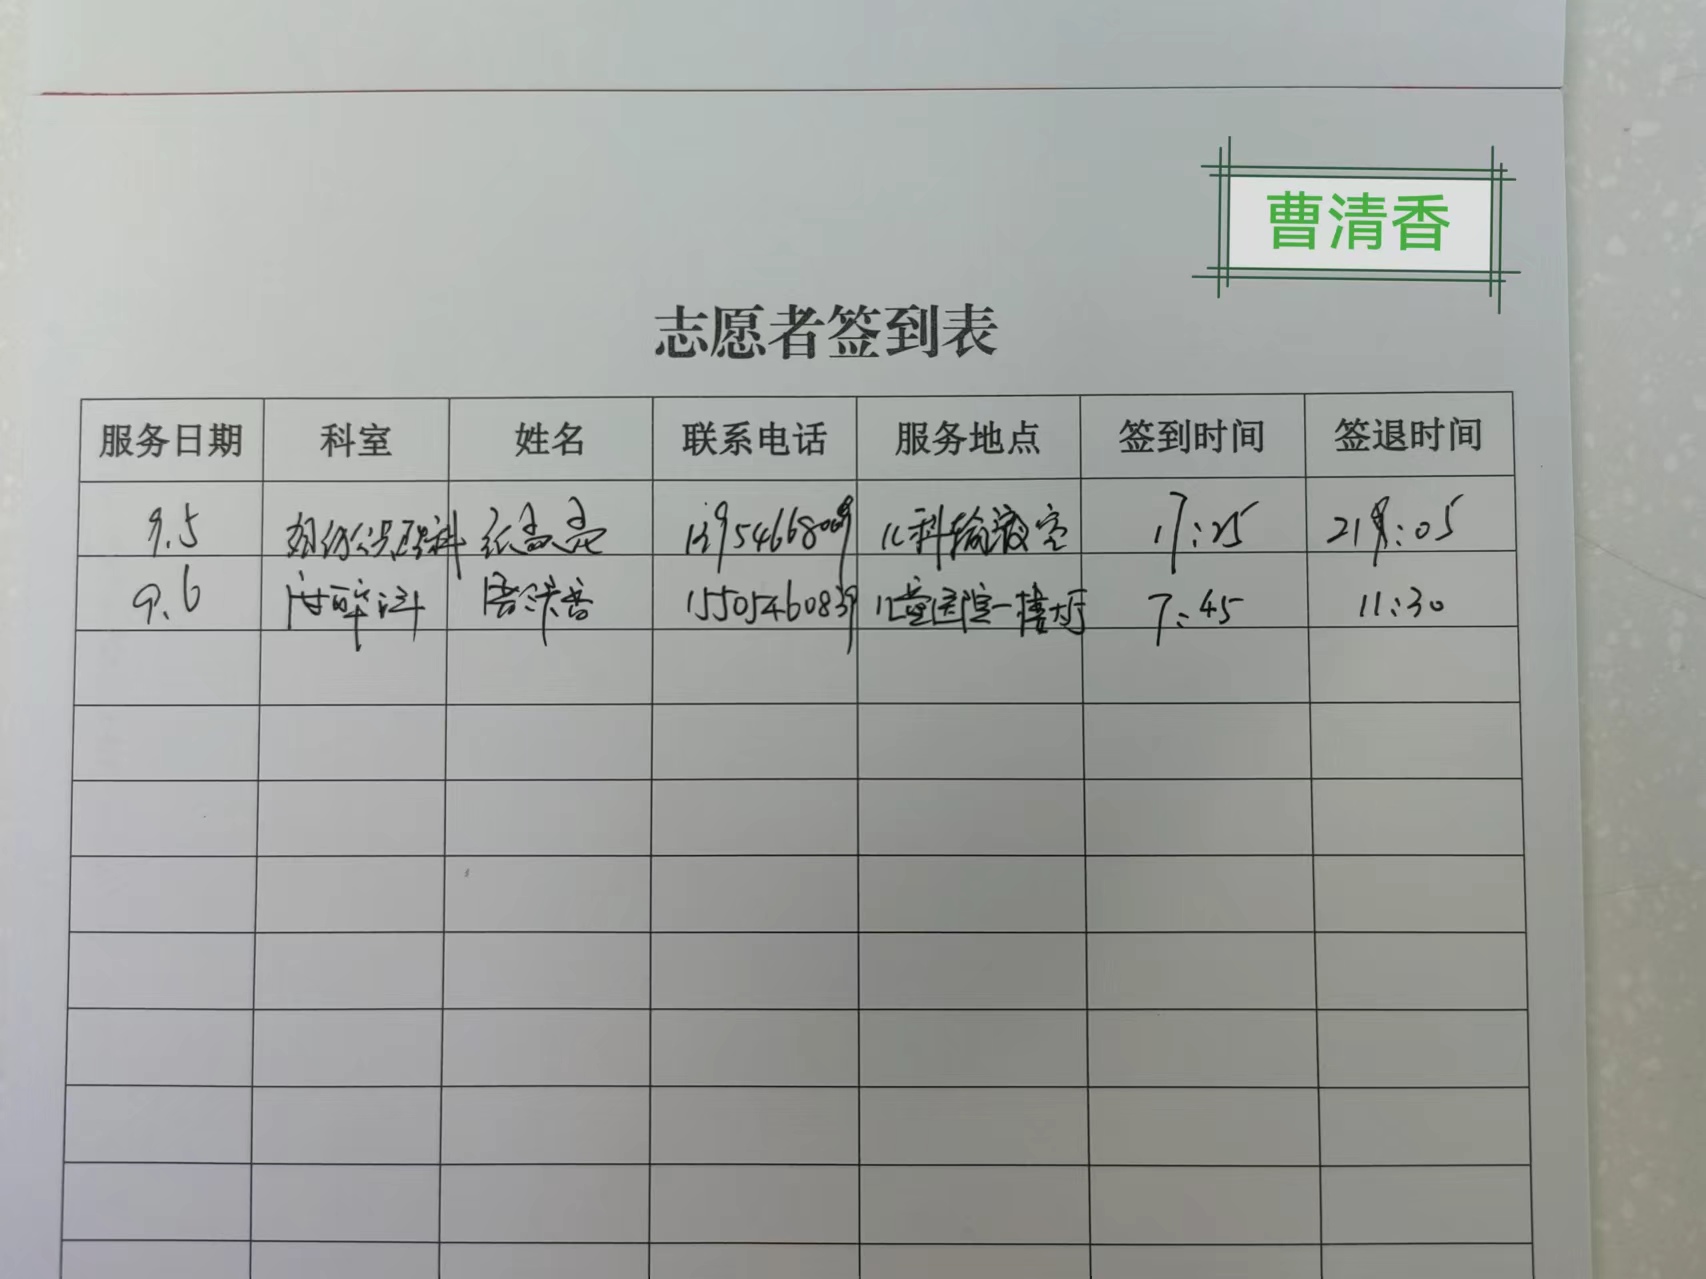 曹清香
志愿者签到表
服务日期 科室 姓名 联系电话 服务地点 签到时间 签退时间
9.5 儿科输液室 17:25 21:05
9.6 麻醉科 15505460839 儿童医院一楼大厅 7:45 11:30